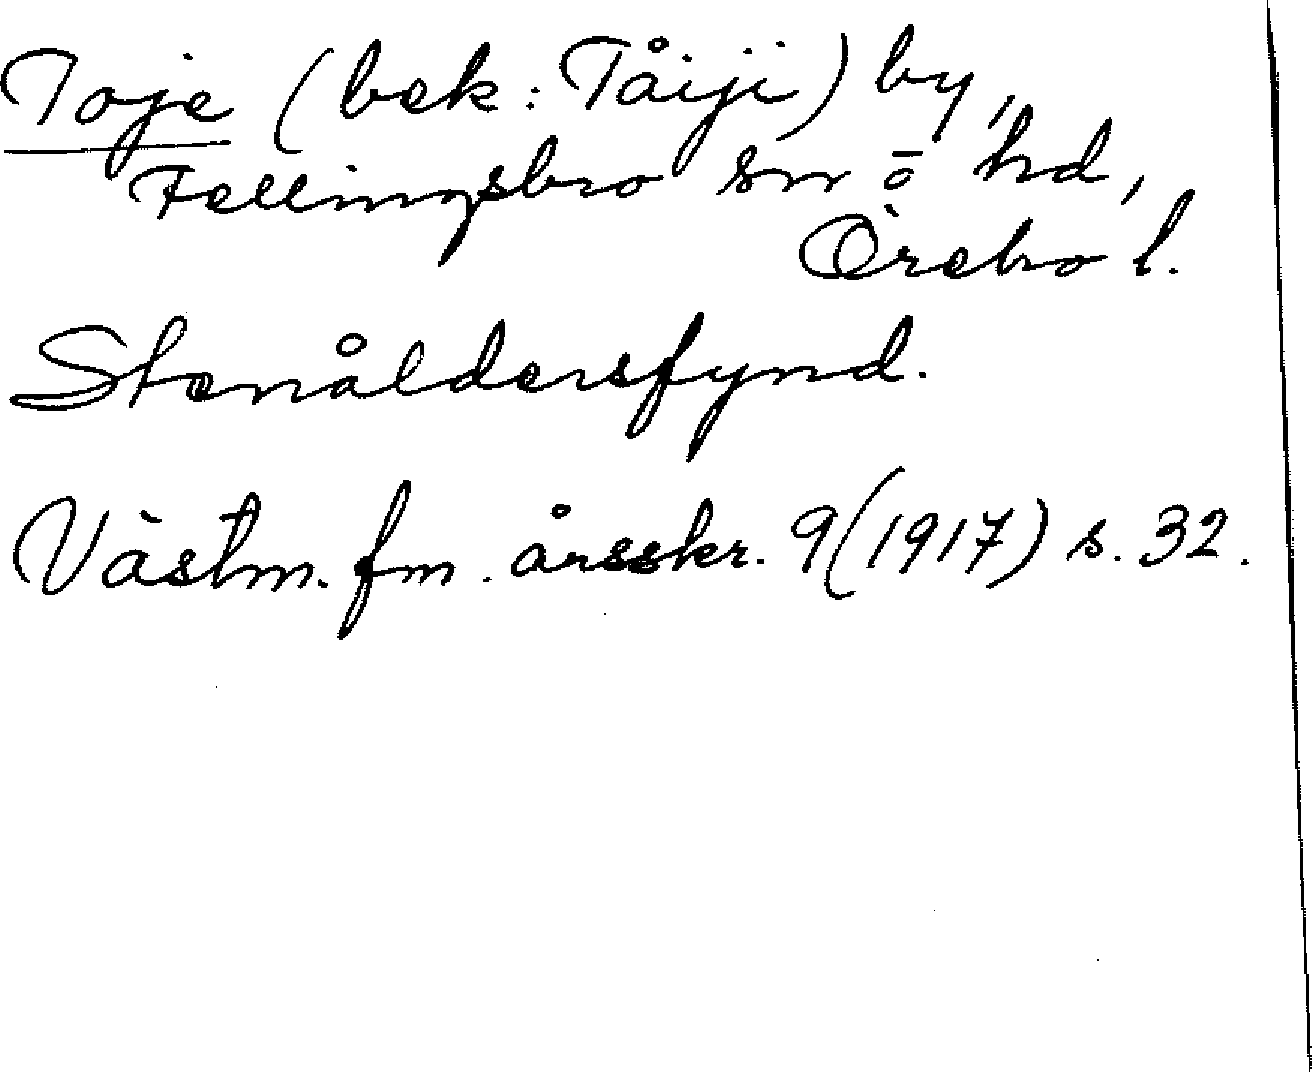 Toje (bek: Tåiji) by,
Fellingsbro sn ō hd,
Örebro l.
Stenåldersfynd.
Västm. fm. årsskr. 9 (1917) s. 32.